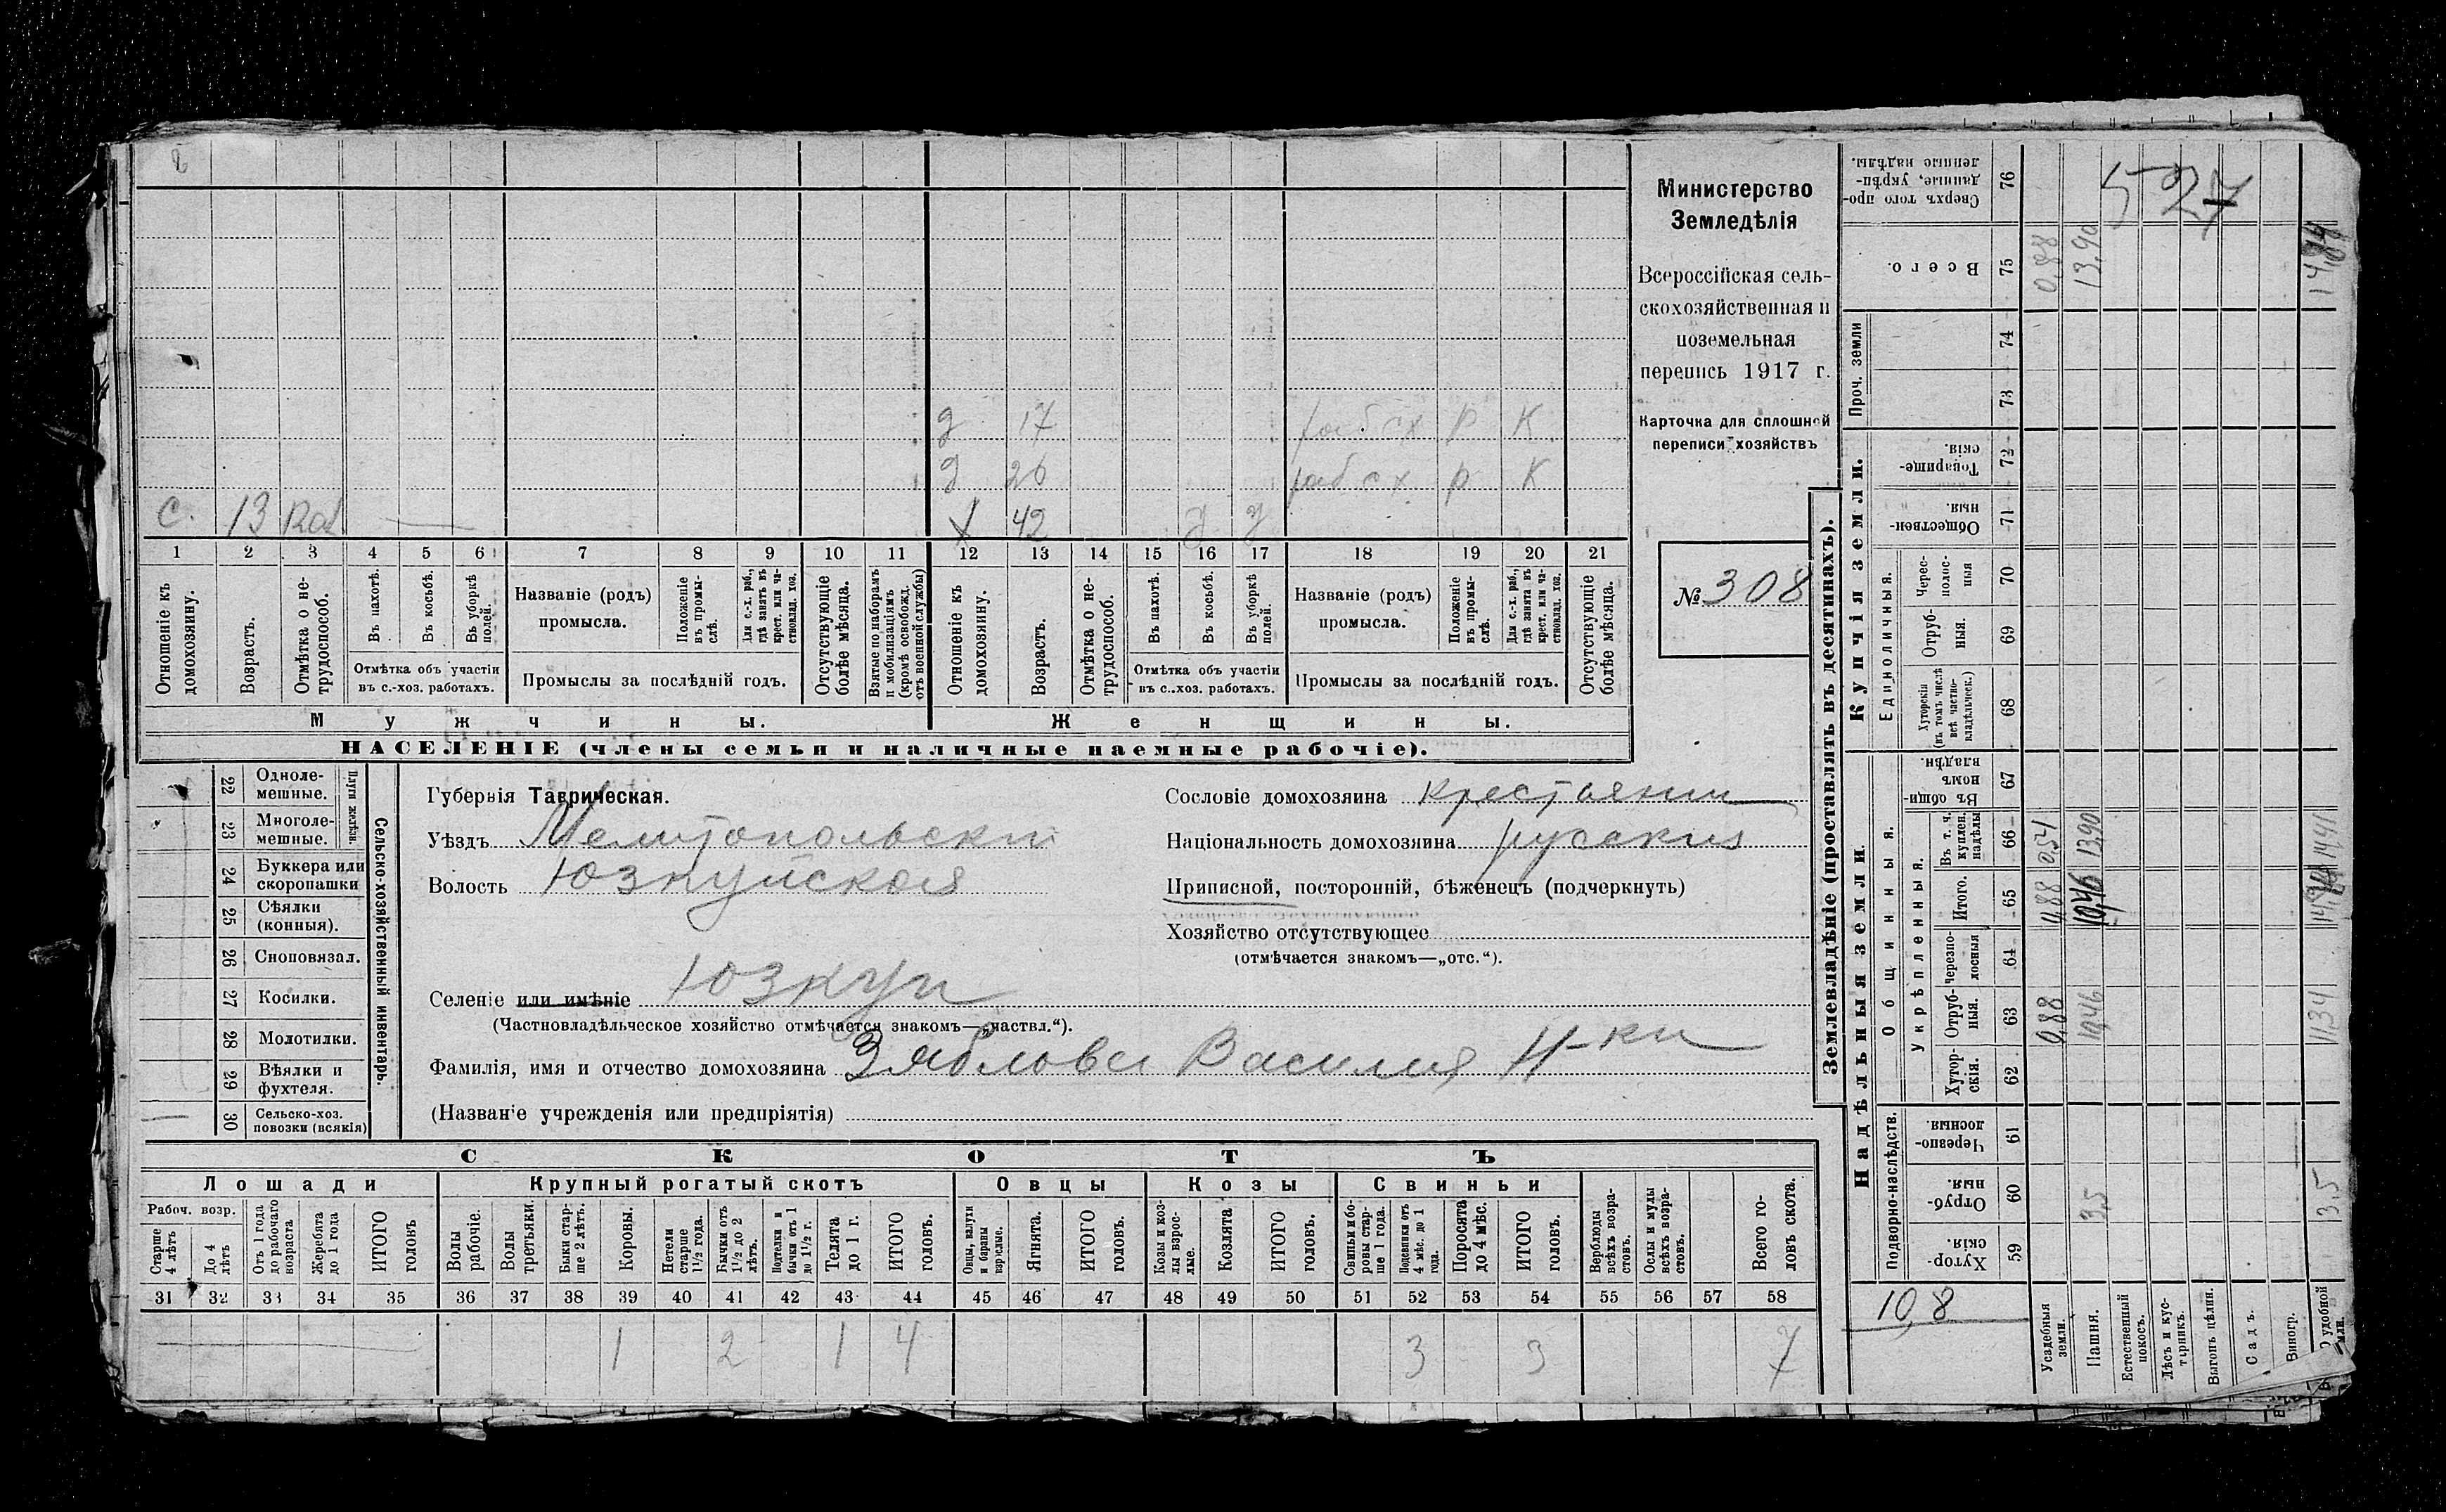 527
Министерство
Земледѣлія
Всероссійская сель-
скохозяйственная и
поземельная
перепись 1917 г.
Карточка для сплошной
переписи хозяйствъ
№ 308
д 17 раб сх р К
д 20 раб сх р К
с. 13 42 у у
1 2 3 4 5 6 7 8 9 10 11 12 13 14 15 16 17 18 19 20 21
Отношеніе къ домохозяину.
Возрастъ.
Отмѣтка о не-трудоспособ.
Въ пахотѣ.
Въ косьбѣ.
Въ уборкѣ полей.
Отмѣтка объ участіи
въ с.-хоз. работахъ.
Названіе (родъ)
промысла.
Положеніе въ промы-слѣ.
Для с.-х. раб., гдѣ занятъ въ крест. или ча-стновлад. хоз.
Промыслы за послѣдній годъ.
Отсутствующіе болѣе мѣсяца.
Взятые по наборамъ и мобилизаціямъ (кромѣ освобожд. отъ военной службы)
Отношеніе къ домохозяину.
Возрастъ.
Отмѣтка о не-трудоспособ.
Въ пахотѣ.
Въ косьбѣ.
Въ уборкѣ полей.
Отмѣтка объ участіи
въ с.-хоз. работахъ.
Названіе (родъ)
промысла.
Положеніе въ промы-слѣ.
Для с.-х. раб., гдѣ занята въ крест. или ча-стновлад. хоз.
Промыслы за послѣдній годъ.
Отсутствующіе болѣе мѣсяца.
Мужчины. Женщины.
НАСЕЛЕНІЕ (члены семьи и наличные наемные рабочіе).
Сельско-хозяйственный инвентарь.
Плуги желѣзн.
22 Одноле-мешные.
23 Многоле-мешные.
24 Буккера или скоропашки
25 Сѣялки (конныя).
26 Сноповязал.
27 Косилки.
28 Молотилки.
29 Вѣялки и фухтеля.
30 Сельско-хоз. повозки (всякія)
Губернія Таврическая.
Уѣздъ Мелитопольскій
Волость Юзкуйская
Селеніе или имѣніе Юзкуи
(Частновладѣльческое хозяйство отмѣчается знакомъ—„частвл.“).
Фамилія, имя и отчество домохозяина Зяблова Василія Н-ки
(Названіе учрежденія или предпріятія)
Сословіе домохозяина крестьянин
Національность домохозяина русскій
Приписной, посторонній, бѣженецъ (подчеркнуть)
Хозяйство отсутствующее
(отмѣчается знакомъ—„отс.“).
СКОТЪ
Лошади Крупный рогатый скотъ Овцы Козы Свиньи
Рабоч. возр.
Старше 4 лѣтъ
До 4 лѣтъ
Отъ 1 года до рабочаго возраста
Жеребята до 1 года
ИТОГО головъ
Волы рабочіе.
Волы третьяки.
Быки стар-ше 2 лѣтъ.
Коровы.
Нетели старше 1½ года.
Бычки отъ 1½ до 2 лѣтъ.
Подтелки и бычки отъ 1 до 1½ г.
Телята до 1 г.
ИТОГО головъ.
Овцы, валухи и бараны взрослые.
Ягнята.
ИТОГО головъ.
Козы и коз-лы взрос-лые.
Козлята
ИТОГО головъ.
Свиньи и бо-ровы стар-ше 1 года.
Подсвинки отъ 4 мѣс. до 1 года.
Поросята до 4 мѣс.
ИТОГО головъ.
Верблюды всѣхъ возра-стовъ.
Ослы и мулы всѣхъ возра-стовъ.
Всего го-ловъ скота.
31 32 33 34 35 36 37 38 39 40 41 42 43 44 45 46 47 48 49 50 51 52 53 54 55 56 57 58
1 2 1 4 3 3 7
Землевладѣніе (проставлять въ десятинахъ).
Надѣльныя земли. Купчія земли. Проч. земли
Подворно-наслѣдств.
Общинныя.
Укрѣпленныя.
Единоличныя.
59 Хутор-скія.
60 Отруб-ныя. 3,5 3,5
61 Черезпо-лосныя
62 Хутор-скія.
63 Отруб-ныя. 0,88 10,46 11,34
64 Черезпо-лосныя
65 Итого.
66 Въ т. ч. куплен. надѣлы 0,54 13,90
67 Въ общин-номъ владѣн.
68 Хуторскія (въ томъ числѣ всѣ частно-владѣльческ.)
69 Отруб-ныя.
70 Черес-полос-ныя
71 Обществен-ныя.
72 Товарище-скія.
73
74
75 Всего. 0,88 13,90
76 Сверхъ того про-данные, укрѣп-ленные надѣлы.
10,8
Усадебныя земли.
Пашня.
Естественный покосъ.
Лѣсъ и кус-тарникъ.
Выгонъ цѣлин.
Садъ.
Виногр.